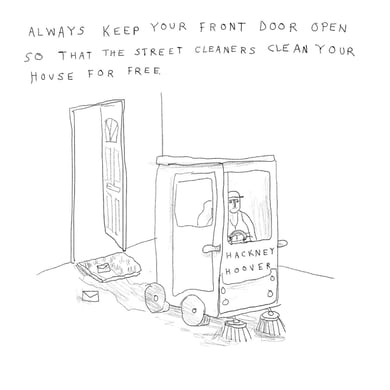 ALWAYS KEEP YOUR FRONT DOOR OPEN
SO THAT THE STREET CLEANERS CLEAN YOUR
HOUSE FOR FREE.
HACKNEY
HOOVER